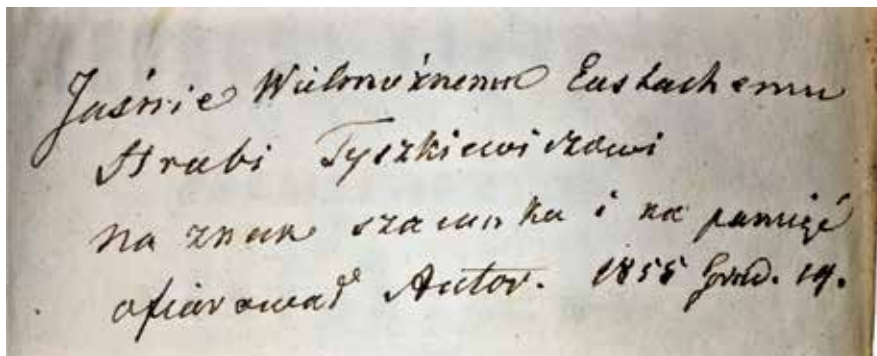 Jaśnie Wielmożnemu Eustachemu
Hrabi Tyszkiewiczowi
na znak szacunku i na pamięć
ofiarował Autor. 1855 Grud. 19.